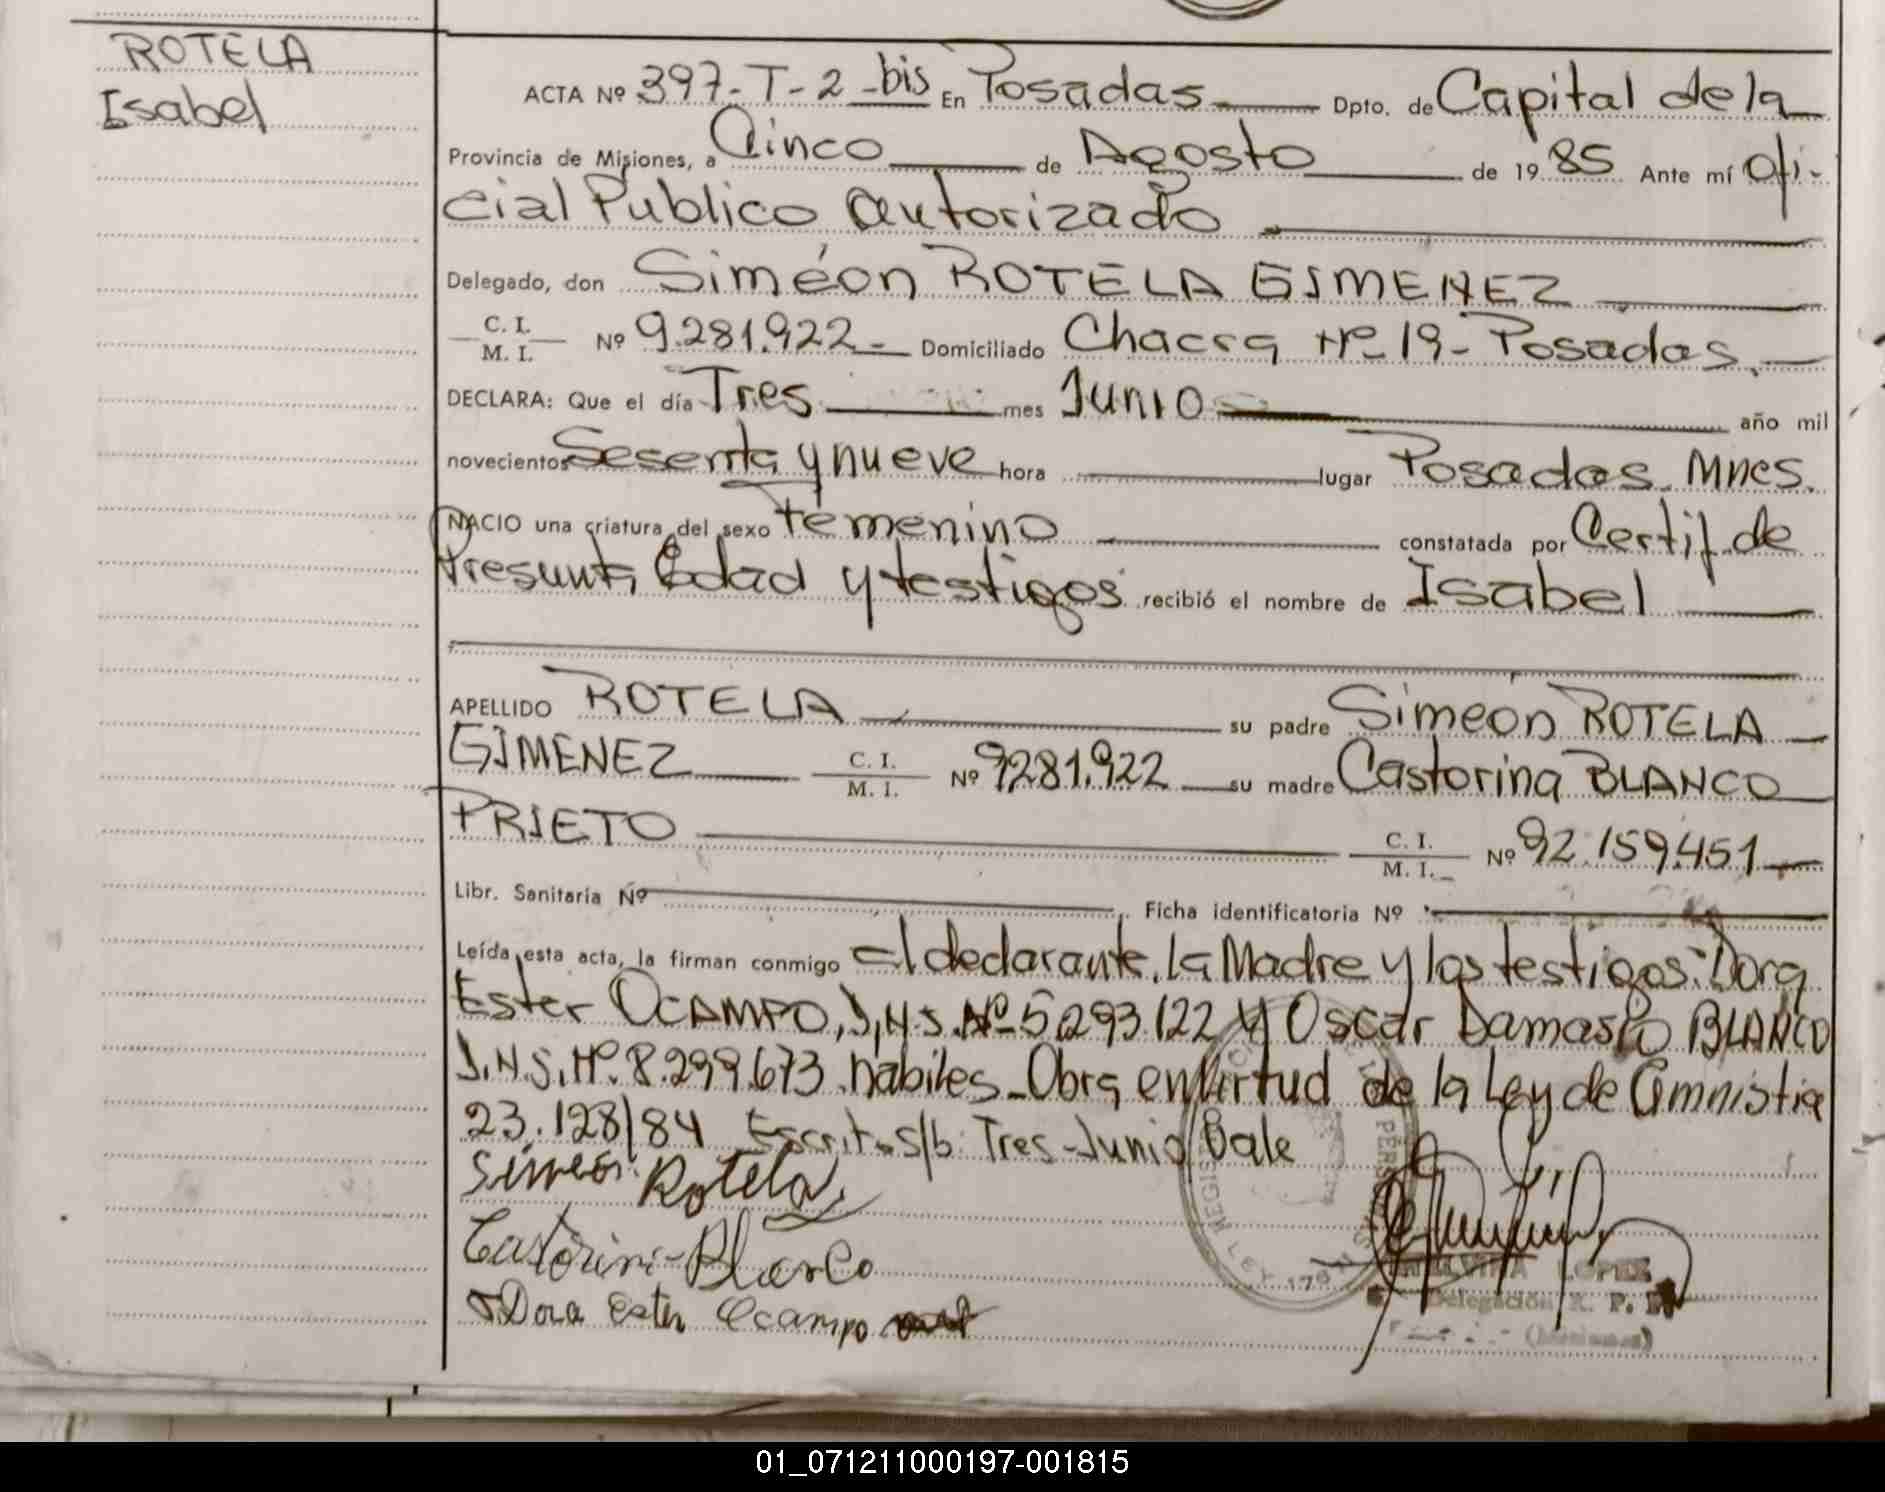 ROTELA
Isabel
ACTA Nº 397-T-2-bis En Posadas Dpto. de Capital de la
Provincia de Misiones, a Cinco de Agosto de 19 85 Ante mí Ofi-
cial Publico autorizado
Delegado, don Siméon ROTELA GIMENEZ
C. I.
M. I. Nº 9.281.922.- Domiciliado Chacra Nº 19- Posadas.
DECLARA: Que el día Tres mes Junio año mil
novecientos Sesenta y nueve hora lugar Posadas Mnes.
NACIO una criatura del sexo femenino constatada por Certif. de
Presunta Edad y testigos recibió el nombre de Isabel
APELLIDO ROTELA su padre Simeon ROTELA
GIMENEZ C. I.
M. I. Nº 9281.922 su madre Castorina BLANCO
PRIETO C. I.
M. I. Nº 92.159.451
Libr. Sanitaria Nº Ficha identificatoria Nº
Leída esta acta, la firman conmigo el declarante, la Madre y los testigos: Dora
Ester OCAMPO, D.N.I. Nº 5.293.122 y Oscar Damasio BLANCO
D.N.I. Nº 8.299.673 habiles- Obra en Virtud de la Ley de amnistia
23.128/84 Escrito s/b: Tres-Junio Vale
Simeon Rotela
Castorina Blanco
Dora Ester Ocampo
LOPEZ
Delegación R. P.
(Misiones)
01_071211000197-001815